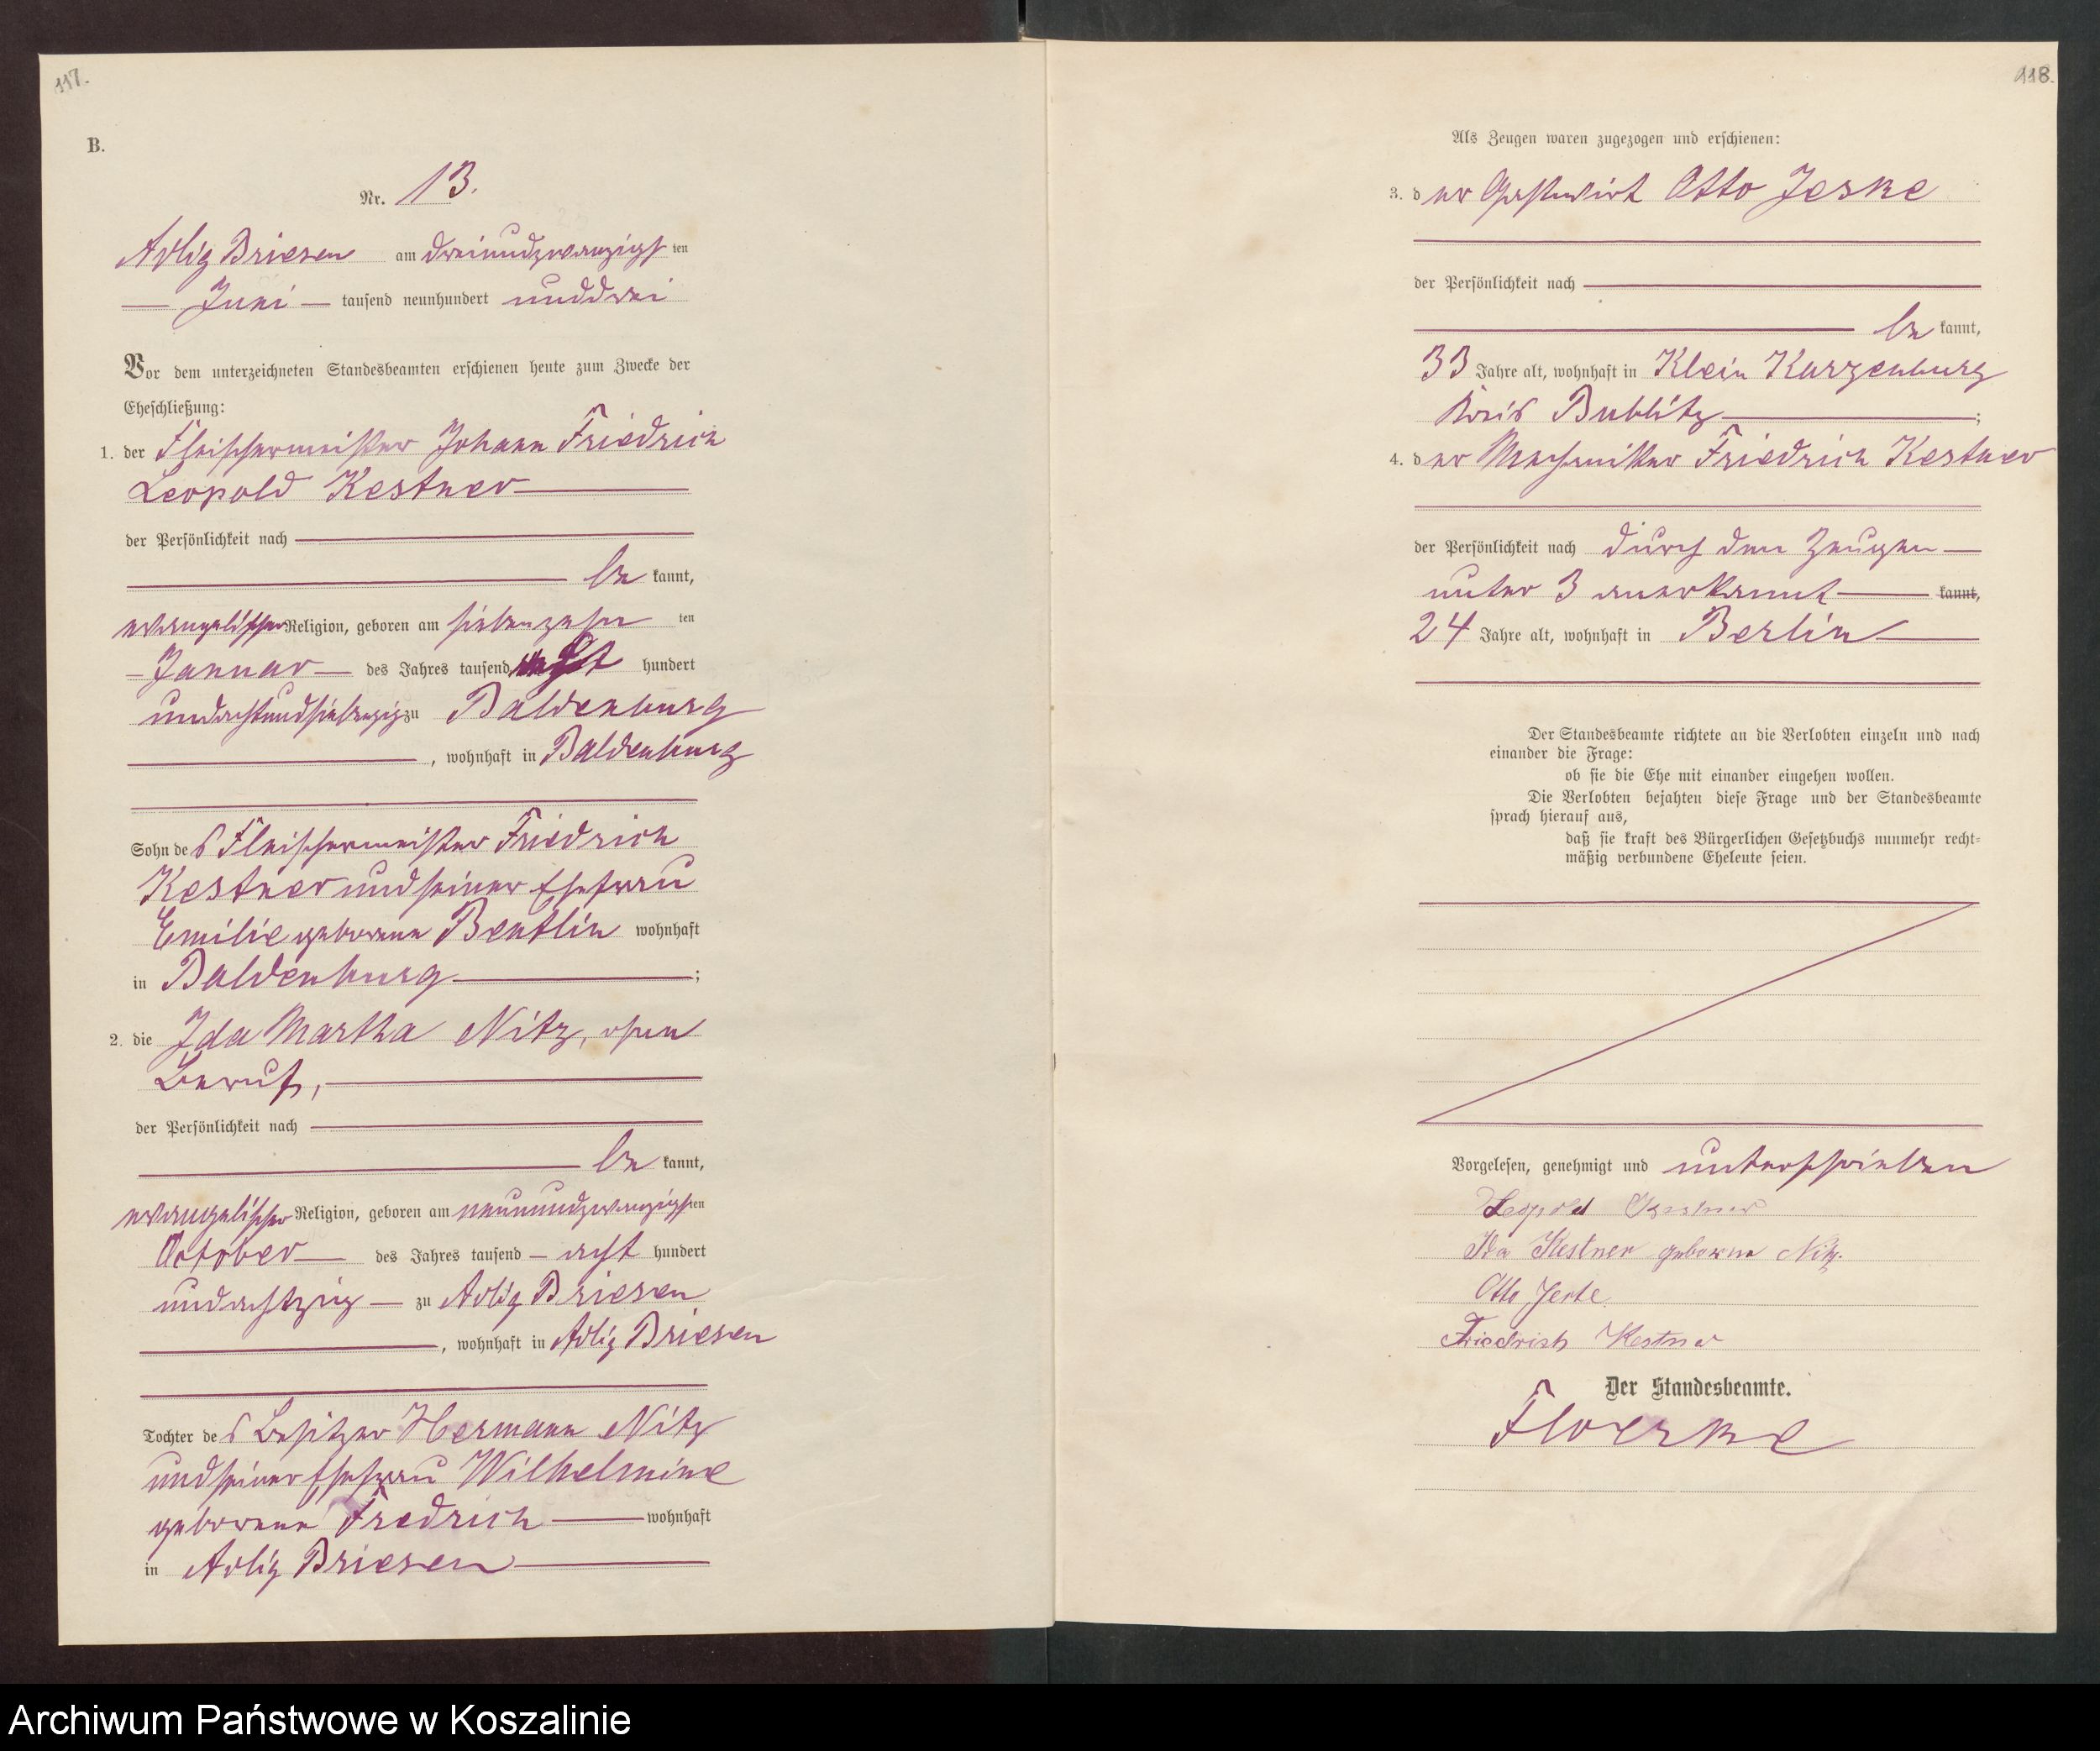 117.
B.
Nr. 13.
Adlig Briesen am dreiundzwanzigsten
Juni tausend neunhundert und drei
Vor dem unterzeichneten Standesbeamten erschienen heute zum Zwecke der
Eheschließung:
1. der Fleischermeister Johann Friedrich
Leopold Kestner
der Persönlichkeit nach
be kannt,
evangelischer Religion, geboren am siebenzehn ten
Januar des Jahres tausend acht hundert
undachtundsiebenzig zu Baldenburg
, wohnhaft in Baldenburg
Sohn des Fleischermeister Friedrich
Kestner und seiner Ehefrau
Emilie geborene Bentlin wohnhaft
in Baldenburg ;
2. die Ida Martha Nitz, ohne
Beruf,
der Persönlichkeit nach
be kannt,
evangelischer Religion, geboren am neunundzwanzigsten
October des Jahres tausend acht hundert
undachtzig zu Adlig Briesen
, wohnhaft in Adlig Briesen
Tochter des Besitzer Hermann Nitz
und seiner Ehefrau Wilhelmine
geborene Fredrich wohnhaft
in Adlig Briesen
118.
Als Zeugen waren zugezogen und erschienen:
3. der Gastwirt Otto Jeske
der Persönlichkeit nach
be kannt,
33 Jahre alt, wohnhaft in Klein Karzenburg
Kreis Bublitz ;
4. der Friedrich Kestner
der Persönlichkeit nach durch den Zeugen
unter 3 anerkannt kannt,
24 Jahre alt, wohnhaft in Berlin
Der Standesbeamte richtete an die Verlobten einzeln und nach
einander die Frage:
ob sie die Ehe mit einander eingehen wollen.
Die Verlobten bejahten diese Frage und der Standesbeamte
sprach hierauf aus,
daß sie kraft des Bürgerlichen Gesetzbuchs nunmehr recht-
mäßig verbundene Eheleute seien.
Vorgelesen, genehmigt und unterschrieben
Leopold Kestner
Ida Kestner geborene Nitz.
Otto Jeske
Friedrich Kestner
Der Standesbeamte.
Floerke
Archiwum Państwowe w Koszalinie